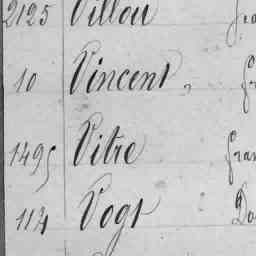 2125 Villou
10 Vincent,
1495 Vitre
114 Vogt